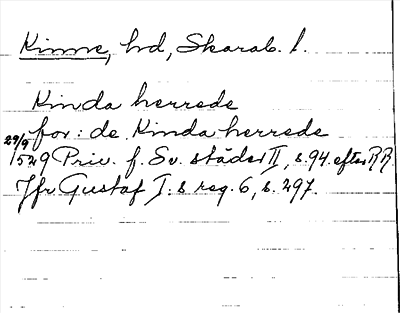 Kinne, hd, Skarab. l.
Kinda herrede
for: de Kinda herrede
29/9 1529 Priv. f. Sv. städer II, s. 94. efter RR.
Jfr Gustaf I:s reg. 6, s. 297.